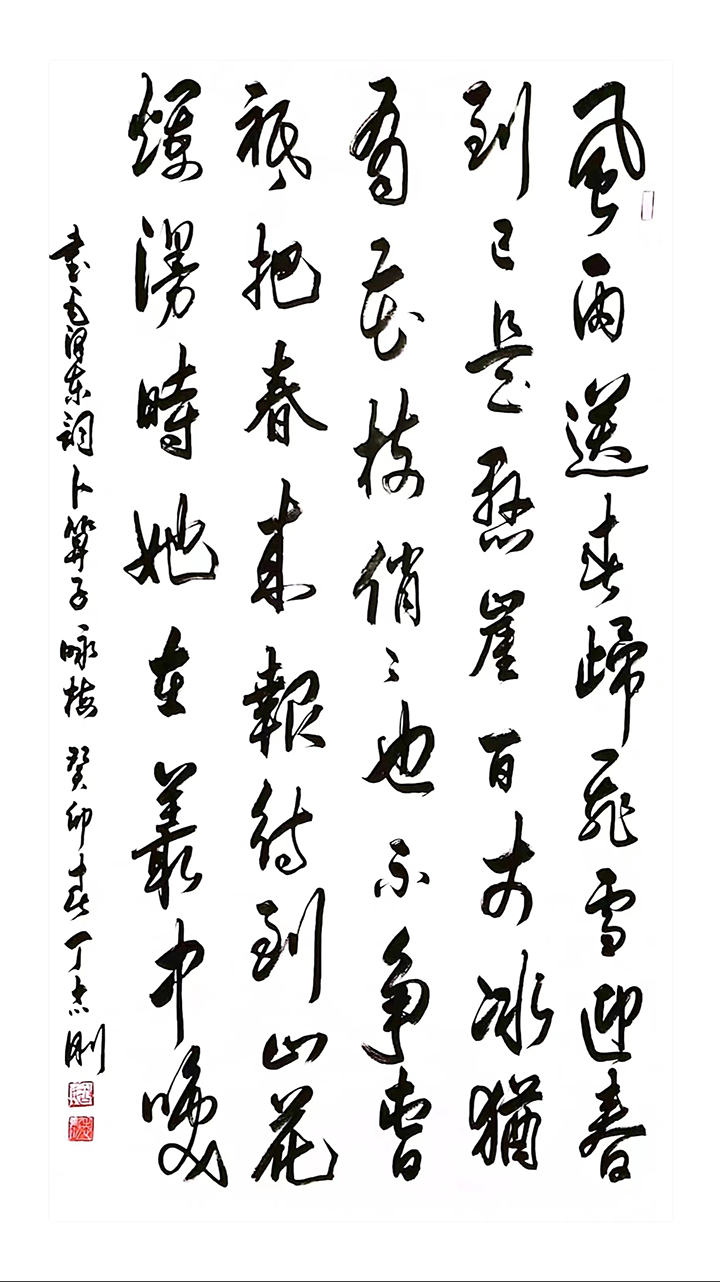 風雨送春歸飛雪迎春
到已是懸崖百丈冰猶
有花枝俏〻也不争春
祇把春來報待到山花
爛漫時她在叢中咲
書毛澤東詞卜算子 咏梅 癸卯春丁志刚